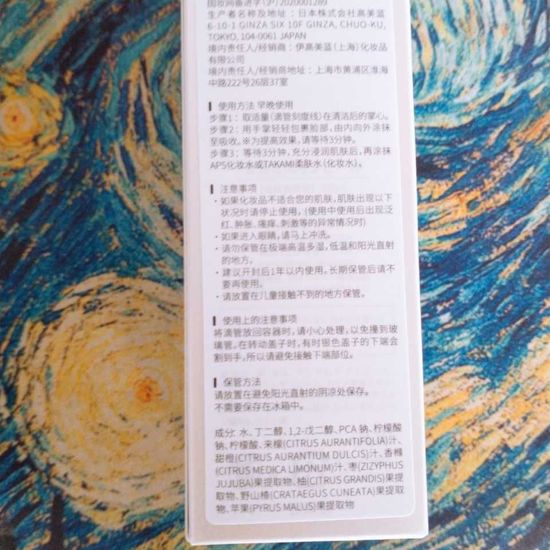 国妆网备进字(沪)2020001289
生产者名称及地址：日本株式会社高美蓝
6-10-1 GINZA SIX 10F GINZA, CHUO-KU,
TOKYO, 104-0061 JAPAN
境内责任人/经销商：伊高美蓝(上海)化妆品
有限公司
境内责任人/经销商地址：上海市黄浦区淮海
中路222号26层37室
使用方法 早晚使用
步骤1：取适量(滴管刻度线)在清洁后的掌心。
步骤2：用手掌轻轻包裹脸部，由内向外涂抹
至吸收。※为提高效果，请等待3分钟。
步骤3：等待3分钟，充分浸润肌肤后，再涂抹
APS化妆水或TAKAMI柔肤水(化妆水)。
注意事项
·如果化妆品不适合您的肌肤，肌肤出现以下
状况时请停止使用，(使用中使用后出现泛
红、肿胀、瘙痒、刺激等的异常情况时)
·如果进入眼睛，请马上冲洗。
·请勿保管在极端高温多湿，低温和阳光直射
的地方。
·建议开封后1年以内使用，长期保管后请不
要再使用。
·请放置在儿童接触不到的地方保管。
使用上的注意事项
将滴管放回容器时，请小心处理，以免撞到玻
璃管。在转动盖子时，有时银色盖子的下端会
割到手，所以请避免接触下端部位。
保管方法
请放置在避免阳光直射的阴凉处保存。
不需要保存在冰箱中。
成分: 水、丁二醇、1,2-戊二醇、PCA 钠、柠檬酸
钠、柠檬酸、来檬(CITRUS AURANTIFOLIA)汁、
甜橙(CITRUS AURANTIUM DULCIS)汁、香橼
(CITRUS MEDICA LIMONUM)汁、枣(ZIZYPHUS
JUJUBA)果提取物、柚(CITRUS GRANDIS)果提取
物、野山楂(CRATAEGUS CUNEATA)果提取
物、苹果(PYRUS MALUS)果提取物